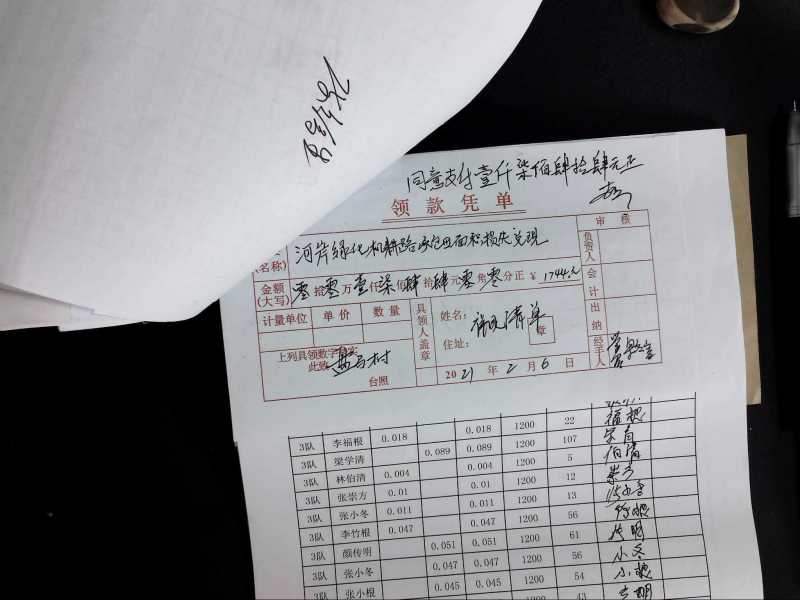 同意支付壹仟柒佰肆拾肆元正
领款凭单
(名称)
河岸绿化机耕路承包田面积损失兑现
审核
负责人
金额(大写) 零拾零万壹仟柒佰肆拾肆元零角零分正 ¥ 1744元
会计
计量单位 单价 数量
具领人盖章
姓名:
清单
章
住址:
出纳
上列具领数字
此致
村
台照
2021年2月6日
经手人
3队 李福根 0.018 0.018 1200 22 福根
3队 梁学清 0.089 0.089 1200 107
3队 林伯清 0.004 0.004 1200 5 伯清
3队 张崇方 0.01 0.01 1200 12
3队 张小冬 0.011 0.011 1200 13
3队 李竹根 0.047 0.047 1200 56
3队 颜传明 0.051 0.051 1200 61
3队 张小冬 0.047 0.047 1200 56 小冬
3队 张小根 0.045 0.045 1200 54
43